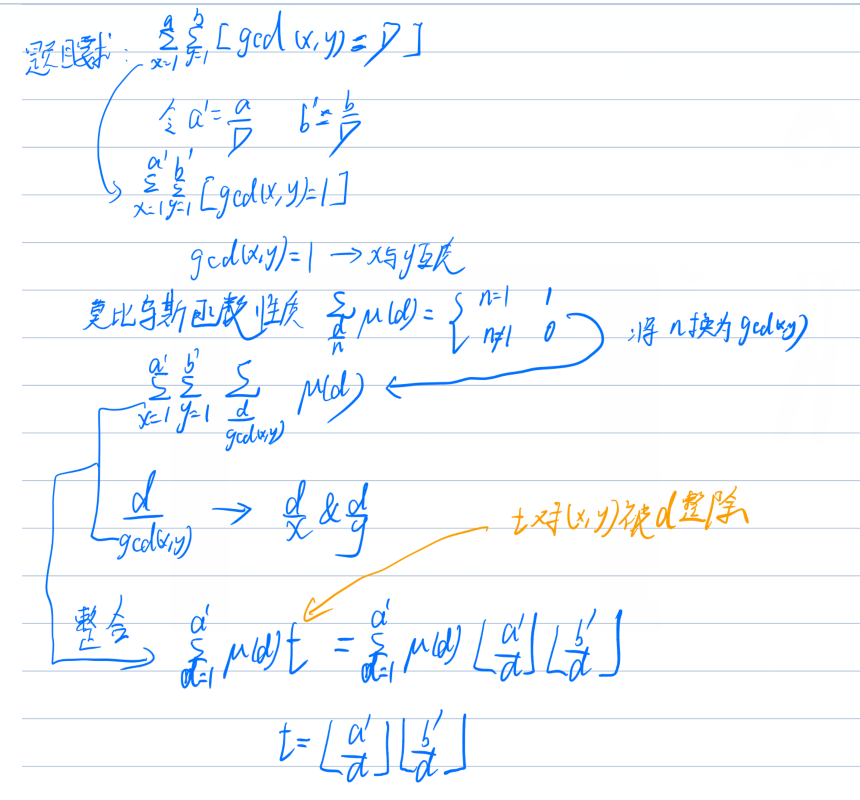 题目要求: \sum_{x=1}^{a} \sum_{y=1}^{b} [gcd(x,y)=D]
令 a'=\frac{a}{D} b'=\frac{b}{D}
\sum_{x=1}^{a'} \sum_{y=1}^{b'} [gcd(x,y)=1]
gcd(x,y)=1 → x与y互质
莫比乌斯函数性质 \sum_{\frac{d}{n}} μ(d) = { n=1 1
n≠1 0
将 n换为gcd(x,y)
\sum_{x=1}^{a'} \sum_{y=1}^{b'} \sum_{\frac{d}{gcd(x,y)}} μ(d)
\frac{d}{gcd(x,y)} → \frac{d}{x} & \frac{d}{y}
t对(x,y)被d整除
整合 \sum_{d=1}^{a'} μ(d) t = \sum_{d=1}^{a'} μ(d) ⌊\frac{a'}{d}⌋ ⌊\frac{b'}{d}⌋
t=⌊\frac{a'}{d}⌋ ⌊\frac{b'}{d}⌋